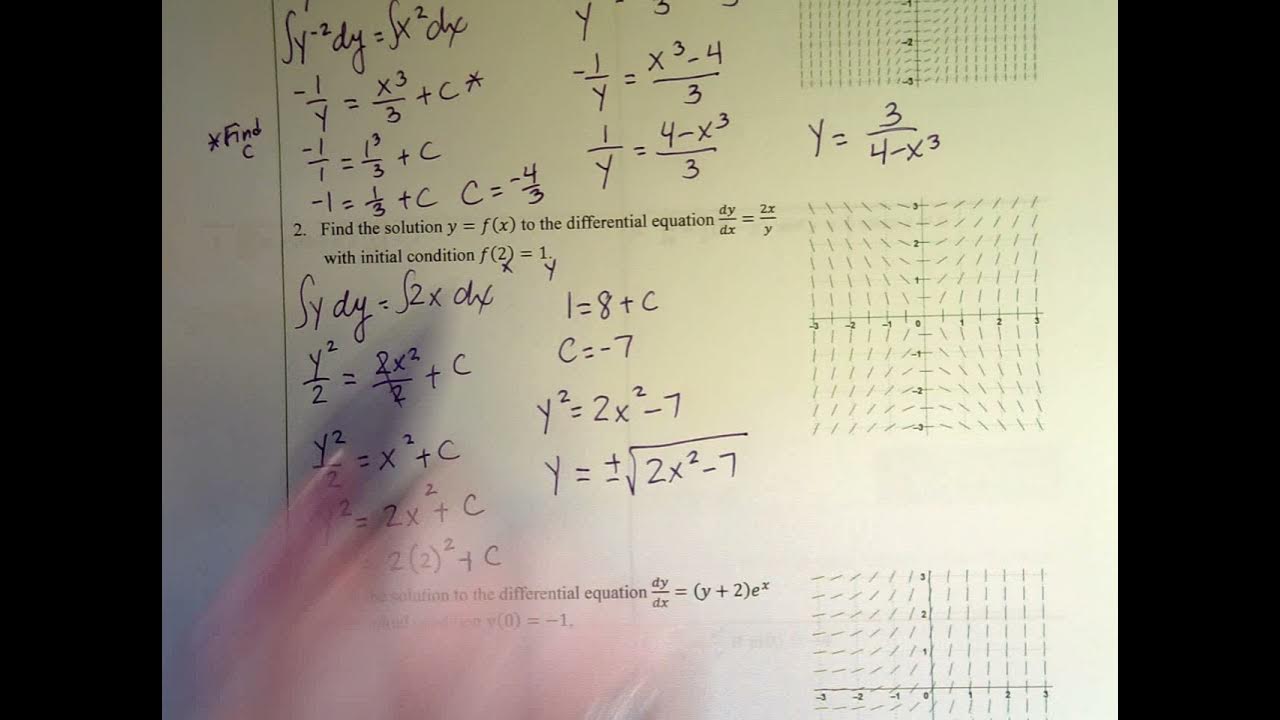 ∫y⁻²dy = ∫x²dx
-1/y = x³/3 + C *
* Find C
-1/1 = 1³/3 + C
-1 = 1/3 + C C = -4/3
y 3
-1/y = x³-4/3
1/y = 4-x³/3
y = 3/4-x³
2. Find the solution y = f(x) to the differential equation dy/dx = 2x/y
with initial condition f(2) = 1.
x y
∫y dy = ∫2x dx
y²/2 = 2x²/2 + C
y²/2 = x² + C
y² = 2x² + C
2(2)² + C
1 = 8 + C
C = -7
y² = 2x² - 7
y = ±√2x² - 7
solution to the differential equation dy/dx = (y + 2)eˣ
y(0) = -1.
-1
-2
-3
3
2
1
-3 -2 -1 0 1 2 3
-1
-2
-3
3
2
1
-3 -2 -1 0 1 2 3